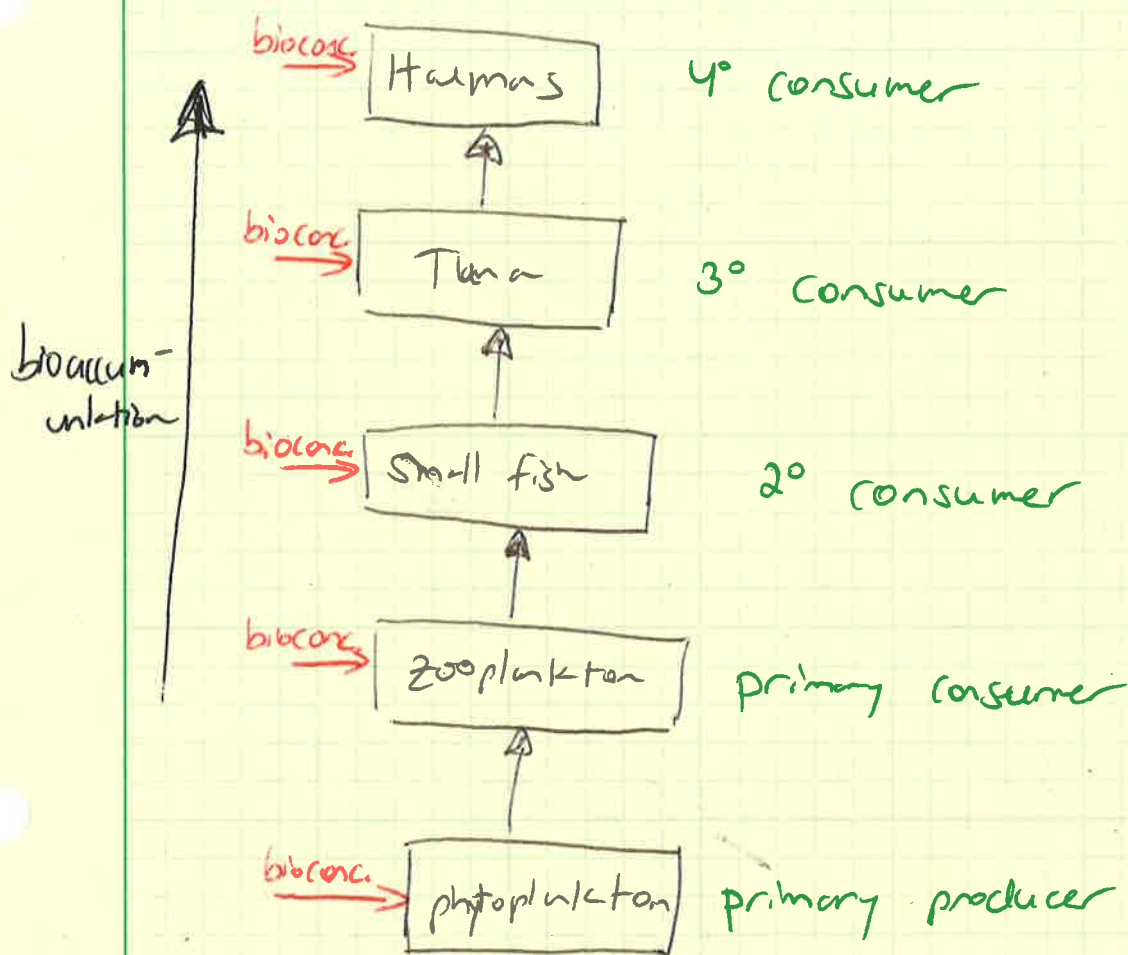 bioconc.
Humans
4° consumer
bioconc.
Tuna
3° consumer
bioaccum-
ulation
bioconc.
Small fish
2° consumer
bioconc.
zooplankton
primary consumer
bioconc.
phytoplankton
primary producer